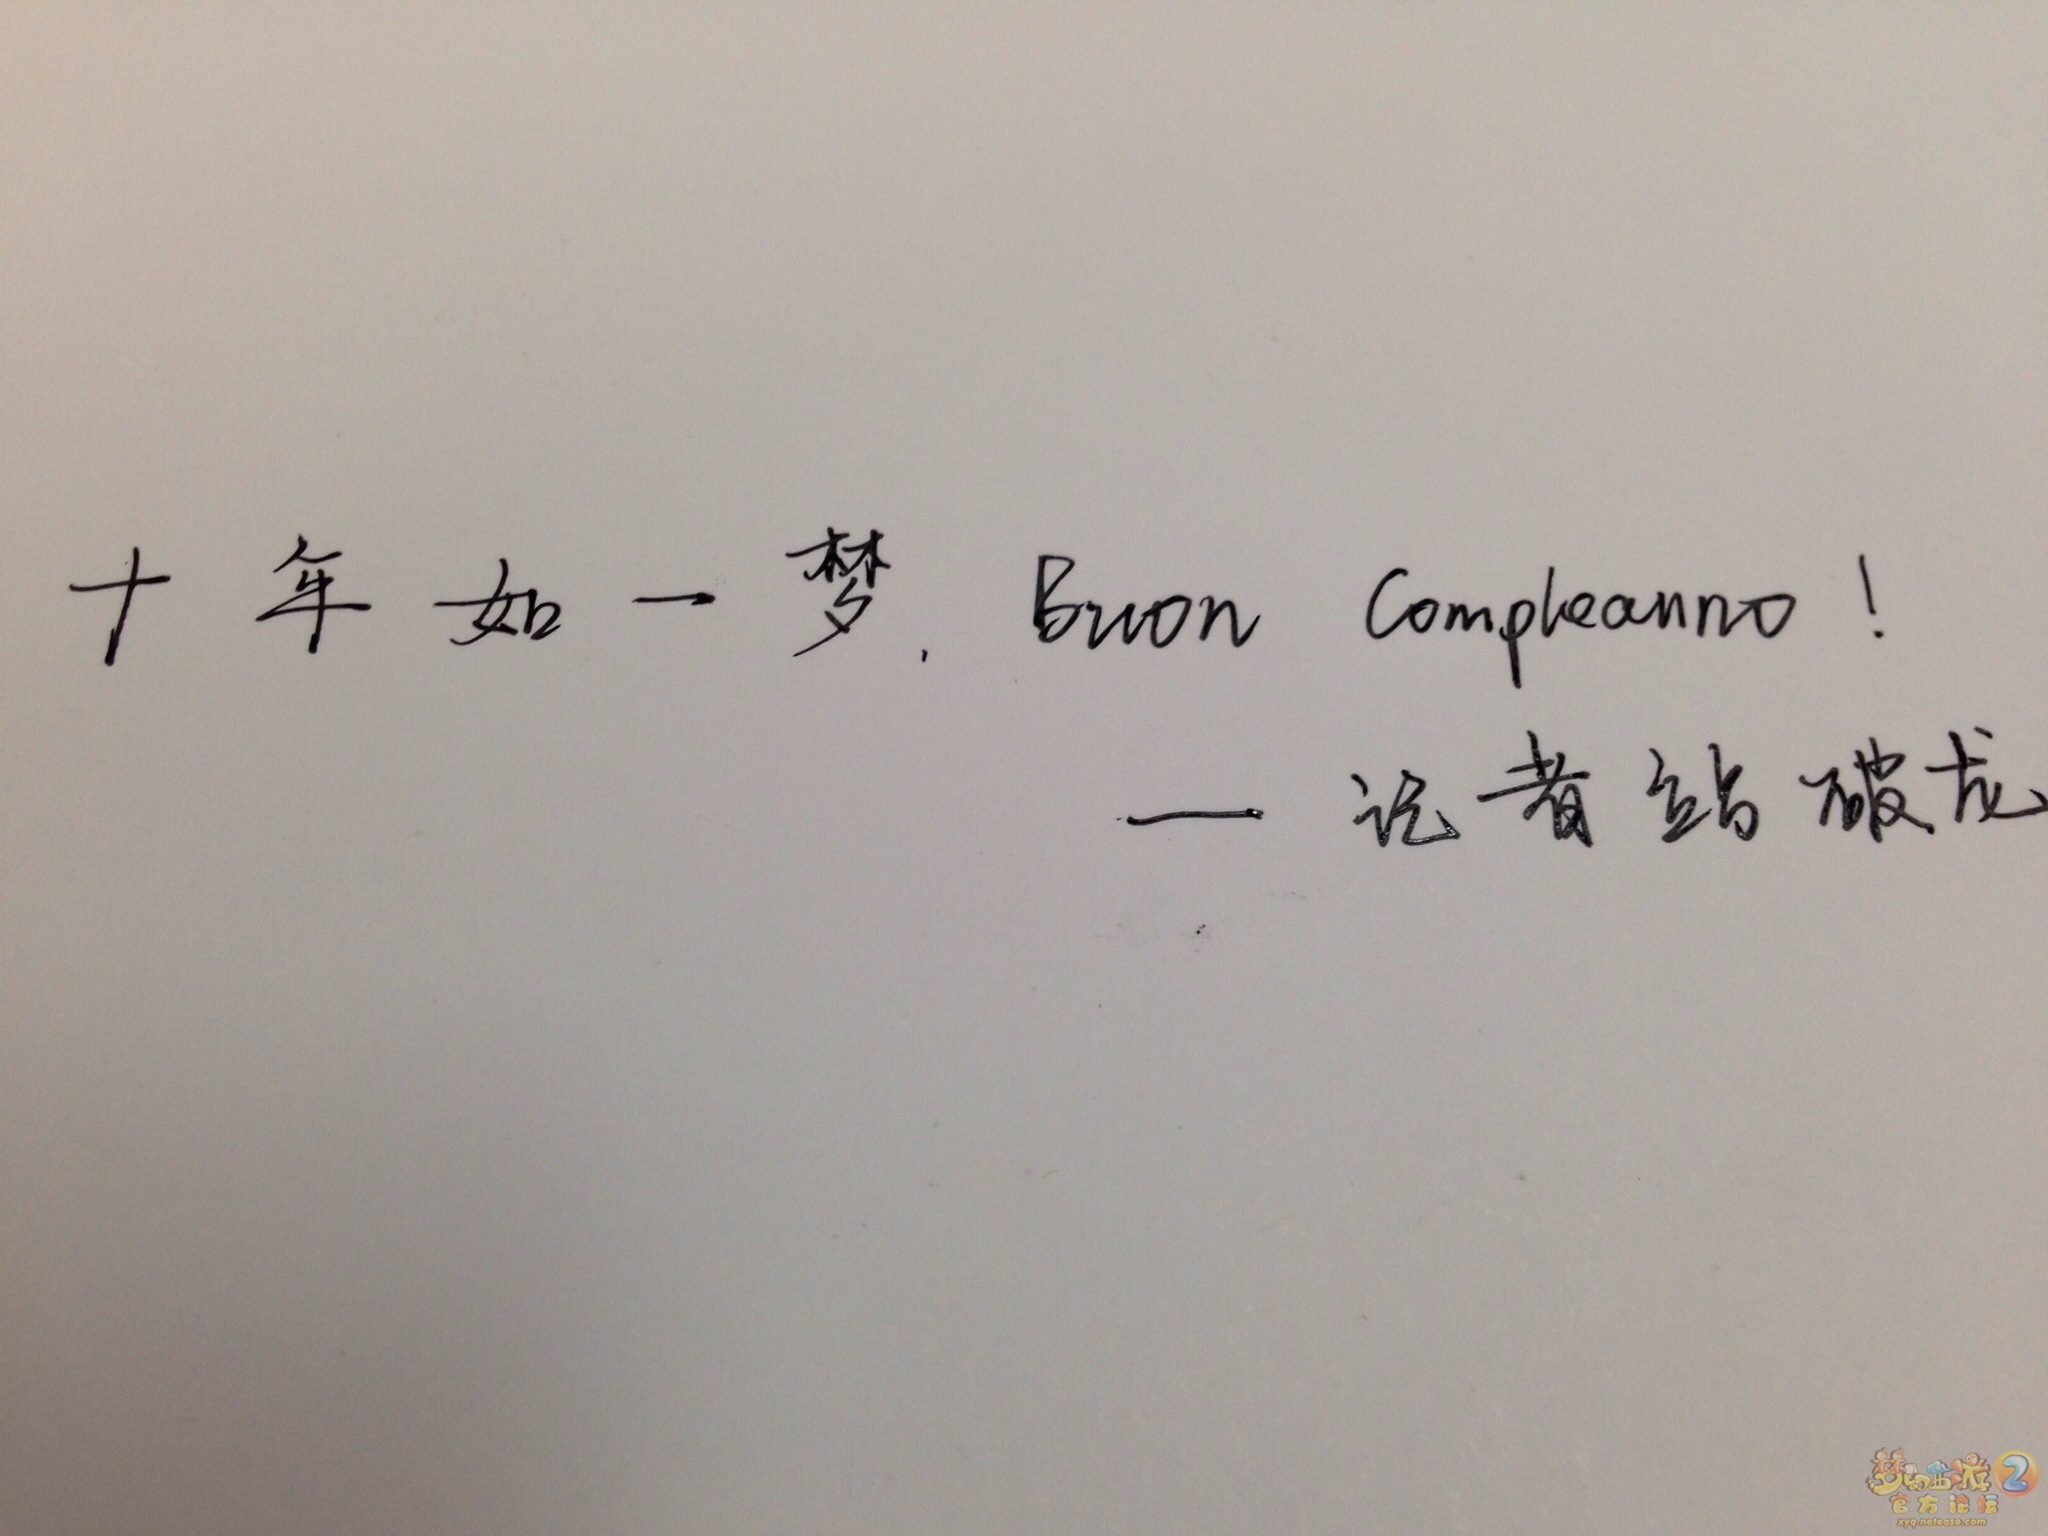 十年如一梦, Buon Compleanno!
— 记者站破龙
梦幻西游2
官方论坛
xyq.netease.com